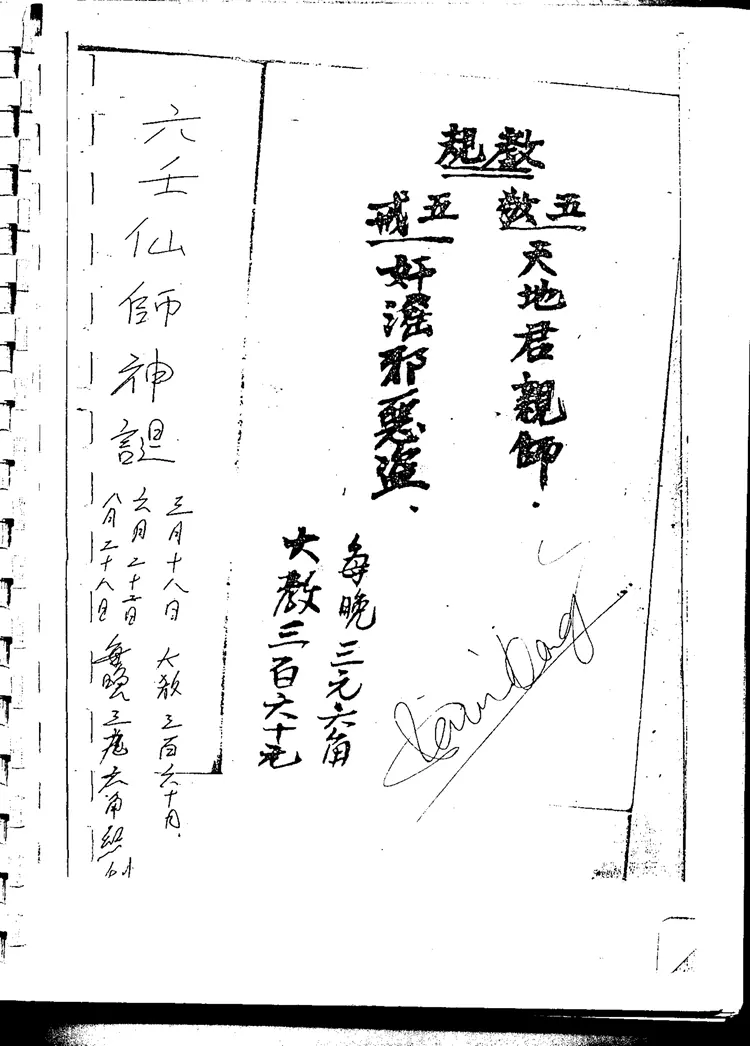 教規
五教
天地君親師.
五戒
奸淫邪惡盜.
每晚三元六角
大教三百六十元
六壬仙師神誕
三月十八日 大教三百六十月.
六月二十二日
八月二十八日 每晚三元六角